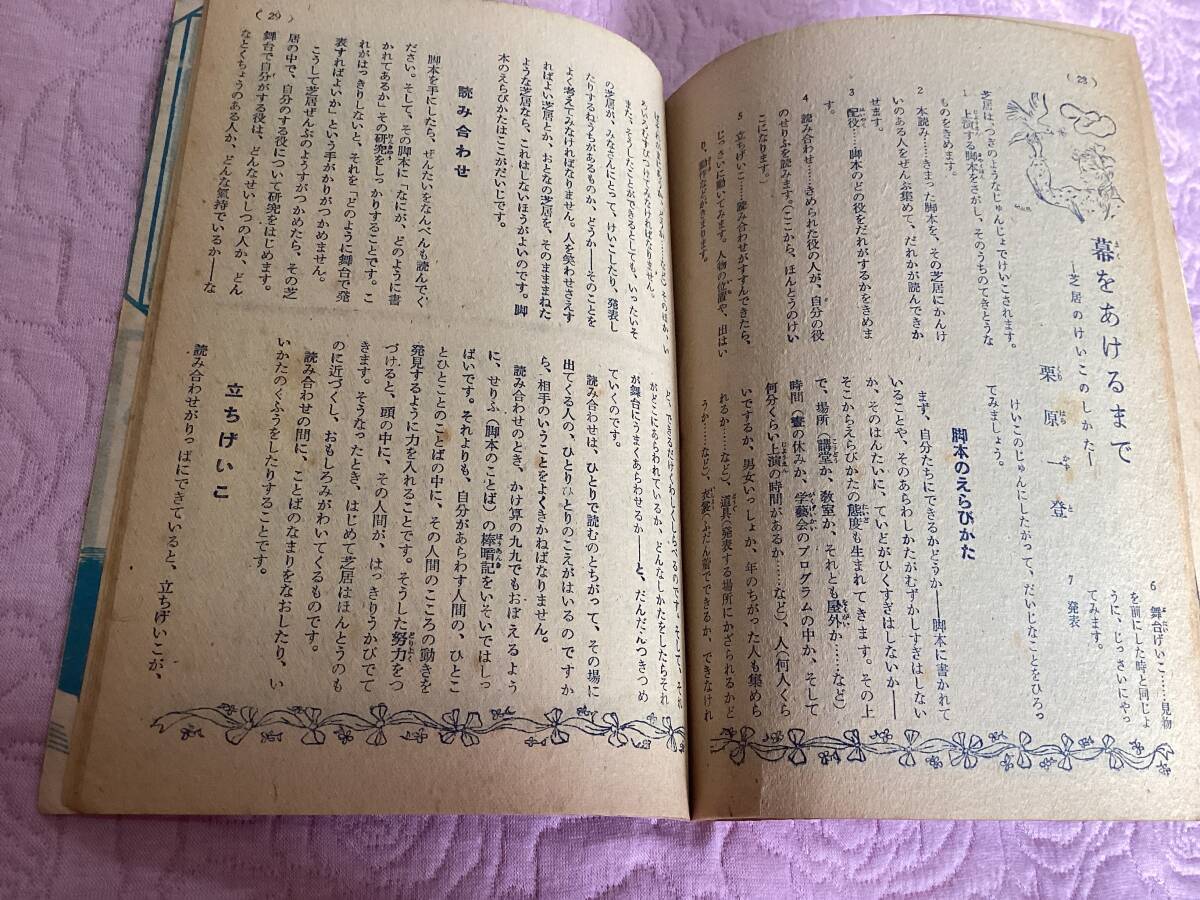 (28)
幕をあけるまで
―芝居のけいこのしかた―
栗原一登
芝居は、つぎのようなじゅんじょでけいこされます。
1 上演する脚本をさがし、そのうちのてきとうな
ものをきめます。
2 本読み……きまった脚本を、その芝居にかんけ
いのある人をぜんぶ集めて、だれかが読んできか
せます。
3 配役……脚本のどの役をだれがするかをきめま
す。
4 読み合わせ……きめられた役の人が、自分の役
のせりふを読みます。(ここから、ほんとうのけい
こになります。)
5 立ちげいこ……読み合わせがすすんできたら、
じっさいに動いてみます。人物の位置や、出はい
り、動作などがきまります。
6 舞台げいこ……見物
を前にした時と同じよ
うに、じっさいにやっ
てみます。
7 発表
けいこのじゅんにしたがって、だいじなことをひろっ
てみましょう。
脚本のえらびかた
まず、自分たちにできるかどうか――脚本に書かれて
いることや、そのあらわしかたがむずかしすぎはしない
か、そのはんたいに、ていどがひくすぎはしないか――
そこからえらびかたの態度も生まれてきます。その上
で、場所(講堂か、教室か、それとも屋外か……など)
時間(昼の休みか、学藝会のプログラムの中か、そして
何分くらい上演の時間があるか……など)、人(何人くら
いでするか、男女いっしょか、年のちがった人も集めら
れるか……など)、道具(発表する場所にかざられるかど
うか……など)、衣裳(ふだん着でできるか、できなけれ
(29)
ろいろむすびつけてみなければなりません。
また、そうしたことができるとしても、いったいそ
の芝居が、みなさんにとって、けいこしたり、発表し
たりするねうちがあるものか、どうか――そのことを
よく考えてみなければなりません。人を笑わせさえす
ればよい芝居とか、おとなの芝居を、そのまままねた
ような芝居なら、これはしないほうがよいのです。脚
本のえらびかたはここがだいじです。
読み合わせ
脚本を手にしたら、ぜんたいをなんべんも読んでく
ださい。そして、その脚本に「なにが、どのように書
かれてあるか」その研究をしっかりすることです。こ
れがはっきりしないと、それを「どのように舞台で発
表すればよいか」という手がかりがつかめません。
こうして芝居ぜんぶのようすがつかめたら、その芝
居の中で、自分のする役について研究をはじめます。
舞台で自分がする役は、どんなせいしつの人か、どん
なとくちょうのある人か、どんな気持でいるか――な
ど、できるだけくわしくしらべるのです。そして、それ
がどこにあらわれているか、どんなしかたをしたらそれ
が舞台にうまくあらわせるか――と、だんだんつきつめ
ていくのです。
読み合わせは、ひとりで読むのとちがって、その場に
出てくる人の、ひとりひとりのこえがはいるのですか
ら、相手のいうことをよくきかねばなりません。
読み合わせのとき、かけ算の九九でもおぼえるよう
に、せりふ(脚本のことば)の棒暗記をいそいではしっ
ぱいです。それよりも、自分があらわす人間の、ひとこ
とひとことのことばの中に、その人間のこころの動きを
発見するように力を入れることです。そうした努力をつ
づけると、頭の中に、その人間が、はっきりうかびでて
きます。そうなったとき、はじめて芝居はほんとうのも
のに近づくし、おもしろみがわいてくるものです。
読み合わせの間に、ことばのなまりをなおしたり、い
いかたのくふうをしたりすることです。
立ちげいこ
読み合わせがりっぱにできていると、立ちげいこが、